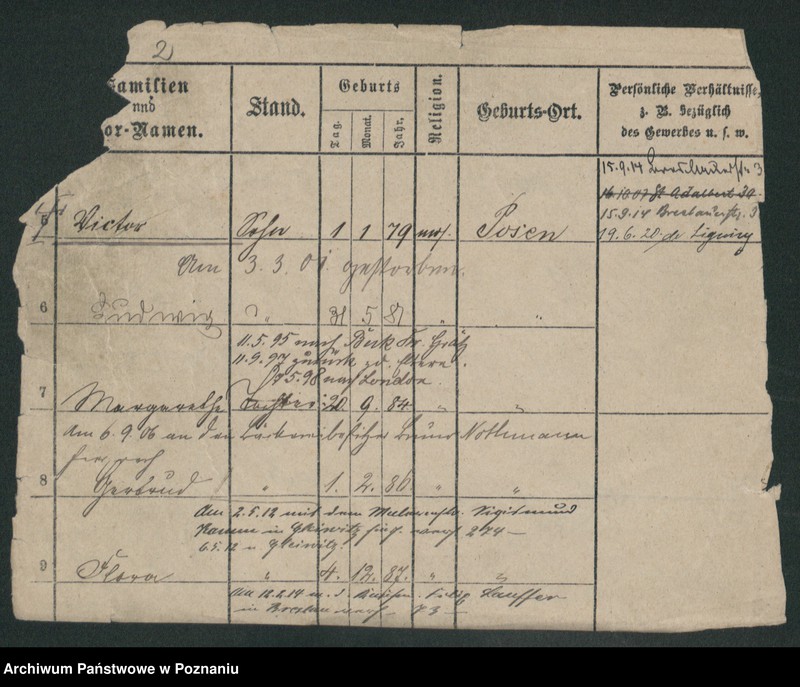 2
Familien
und
or-Namen.
Stand.
Geburts
Tag.
Monat.
Jahr.
Religion.
Geburts-Ort.
Persönliche Verhältnisse,
z. B. bezüglich
des Gewerbes u. s. w.
15.9.14 3
16 10 07 St Adalbert 39
5 Victor Sohn 1 1 79 mos. Posen
15.9.14 Breslauerstr. 3
19.6.20.
Am 3.3.01 gestorben.
6 Ludwig " 31 5 81 " "
11.5.95 nach Buk Kr. Grätz
11.9.97 zurück zd. Eltern.
5.98 nach London.
7 Margarethe Tochter 20 9 84 " "
Am 6.9.06 an den Bäckereibesitzer Bruno Nothmann
8 Gertrud " 1. 2. 86 " "
Am 2.5.12 mit dem Sigismund
Hamm in Gleiwitz 274
6.5.12 n Gleiwitz.
9 Flora " 4. 12. 87. " "
Am 12.2.14 m. d. Lauffer
in Breslau 73
Archiwum Państwowe w Poznaniu